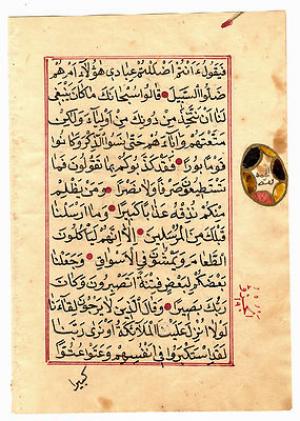 فَيَقُولُ ءَاَنْتُمْ اَضْلَلْتُمْ عِبَادِى هٰؤُلَآءِ اَمْ هُمْ
ضَلُّوا السَّبِيلَ قَالُوا سُبْحَانَكَ مَا كَانَ يَنْبَغِى
لَنَا اَنْ نَتَّخِذَ مِنْ دُونِكَ مِنْ اَوْلِيَآءَ وَلٰكِنْ
مَتَّعْتَهُمْ وَاٰبَآءَهُمْ حَتّٰى نَسُوا الذِّكْرَ وَكَانُوا
قَوْمًا بُورًا فَقَدْ كَذَّبُوكُمْ بِمَا تَقُولُونَ فَمَا
تَسْتَطِيعُونَ صَرْفًا وَلَا نَصْرًا وَمَنْ يَظْلِمْ
مِنْكُمْ نُذِقْهُ عَذَابًا كَبِيرًا وَمَآ اَرْسَلْنَا
قَبْلَكَ مِنَ الْمُرْسَلِينَ اِلَّآ اِنَّهُمْ لَيَأْكُلُونَ
الطَّعَامَ وَيَمْشُونَ فِى الْاَسْوَاقِ وَجَعَلْنَا
بَعْضَكُمْ لِبَعْضٍ فِتْنَةً اَتَصْبِرُونَ وَكَانَ
رَبُّكَ بَصِيرًا وَقَالَ الَّذِينَ لَا يَرْجُونَ لِقَآءَنَا
لَوْلَآ اُنْزِلَ عَلَيْنَا الْمَلٰٓئِكَةُ اَوْ نَرٰى رَبَّنَا
لَقَدِ اسْتَكْبَرُوا فِىٓ اَنْفُسِهِمْ وَعَتَوْ عُتُوًّا
كَبِيرًا